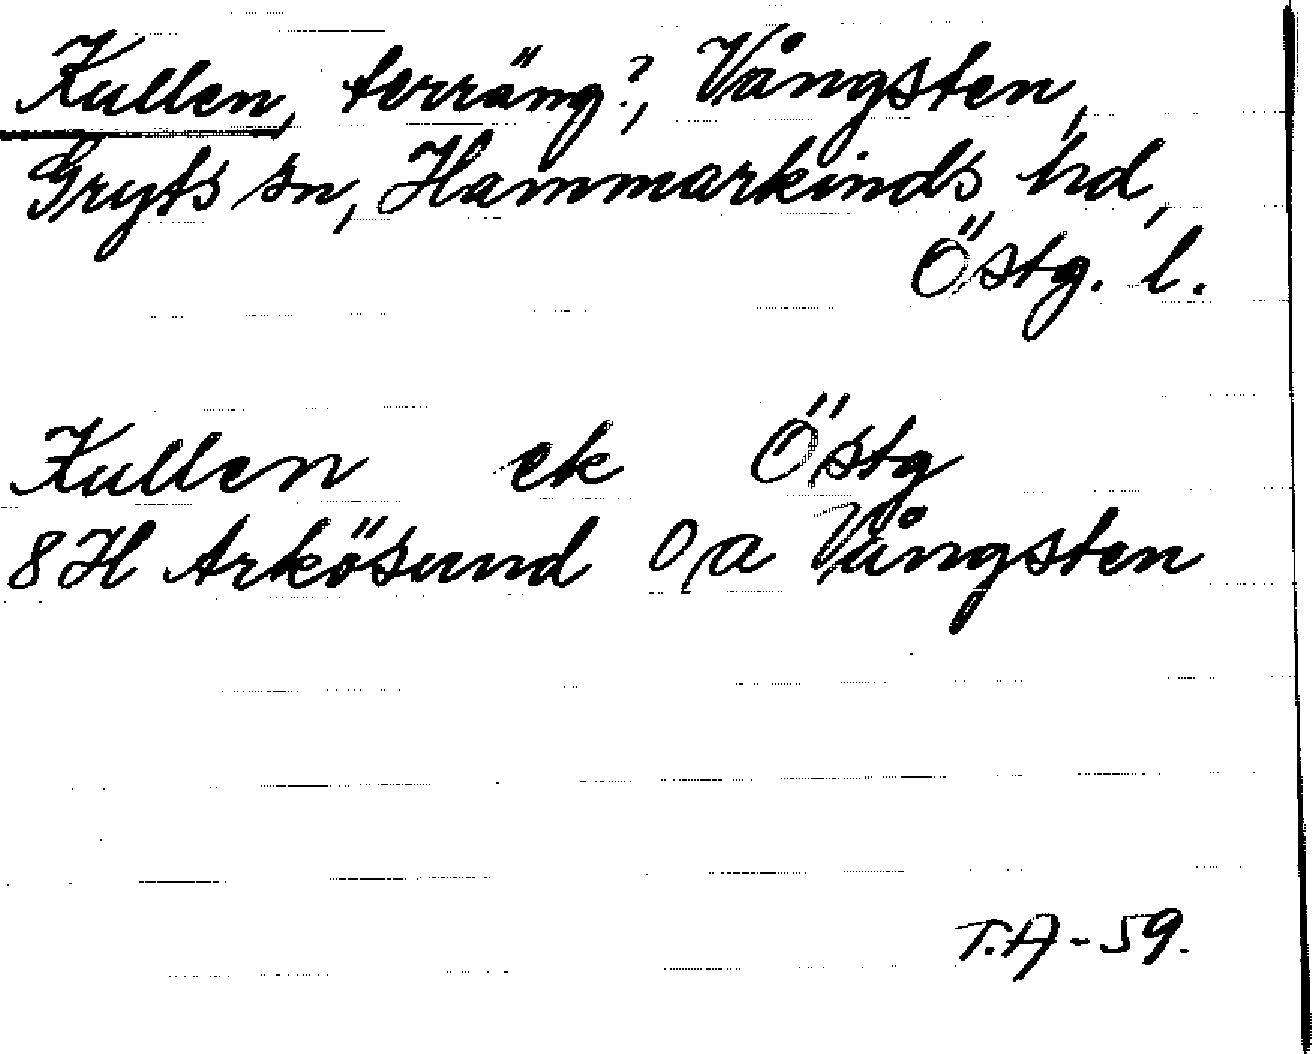 Kullen, terräng?, Vångsten,
Gryts sn, Hammarkinds hd,
Östg. l.
Kullen ek Östg
8H Arkösund o,a Vångsten
T.A-59.